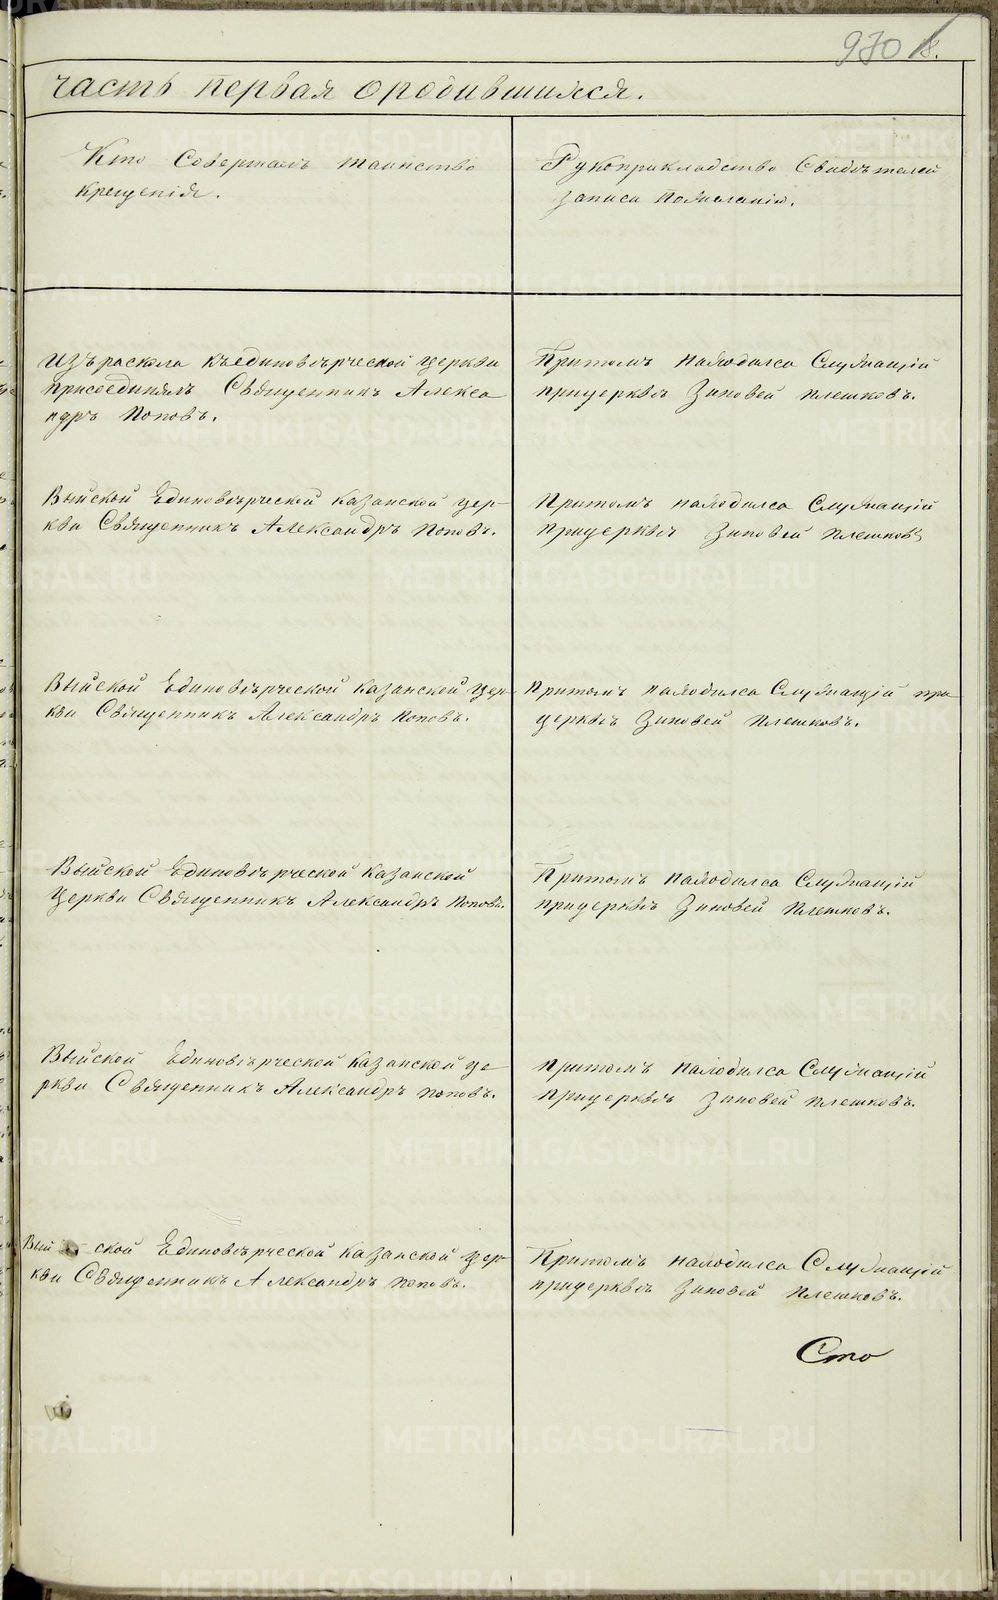 970
8.
часть первая ородившихся.
Кто Совершалъ таинство
крещенія.
Рукоприкладство Свидѣтелей
записи пожеланію.
Изъраскола Къединовѣрческой церкви
присоединялъ Священникъ Алекса
ндръ Поповъ.
Притомъ находился Служащій
прицерквѣ Зиновей Плешковъ.
Выйской Единовѣрческой Казанской цер-
кви Священникъ Александръ Поповъ.
Притомъ находился Служащій
прицерквѣ Зиновей Плешковъ
Выйской Единовѣрческой Казанской цер-
кви Священникъ Александръ Поповъ.
Притомъ находился Служащій при
церквѣ Зиновей Плешковъ.
Выйской Единовѣрческой Казанской
Церкви Священникъ Александръ Поповъ.
Притомъ находился Служащій
прицерквѣ Зиновей Плешковъ.
Выйской Единовѣрческой Казанской це-
ркви Священникъ Александръ Поповъ.
Притомъ находился Служащій
прицерквѣ Зиновей Плешковъ.
Вый ской Единовѣрческой Казанской цер-
кви Священникъ Александръ Поповъ.
Притомъ находился Служащій
прицерквѣ Зиновей Плешковъ.
Сто
METRIKI.GASO-URAL.RU